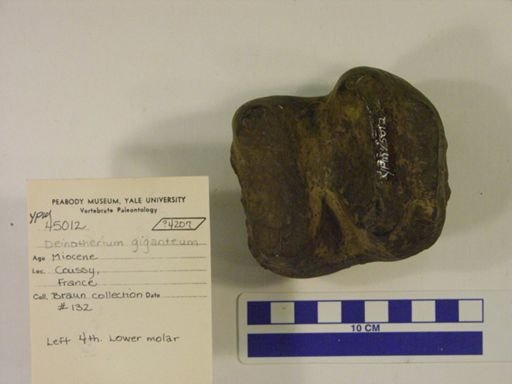 PEABODY MUSEUM, YALE UNIVERSITY
Vertebrate Paleontology
YPM
45012
94207
Deinotherium giganteum
Age Miocene
Loc. Coussy,
France
Coll. Braun collection Date
# 132
Left 4th. Lower molar
YPM 45012
10 CM